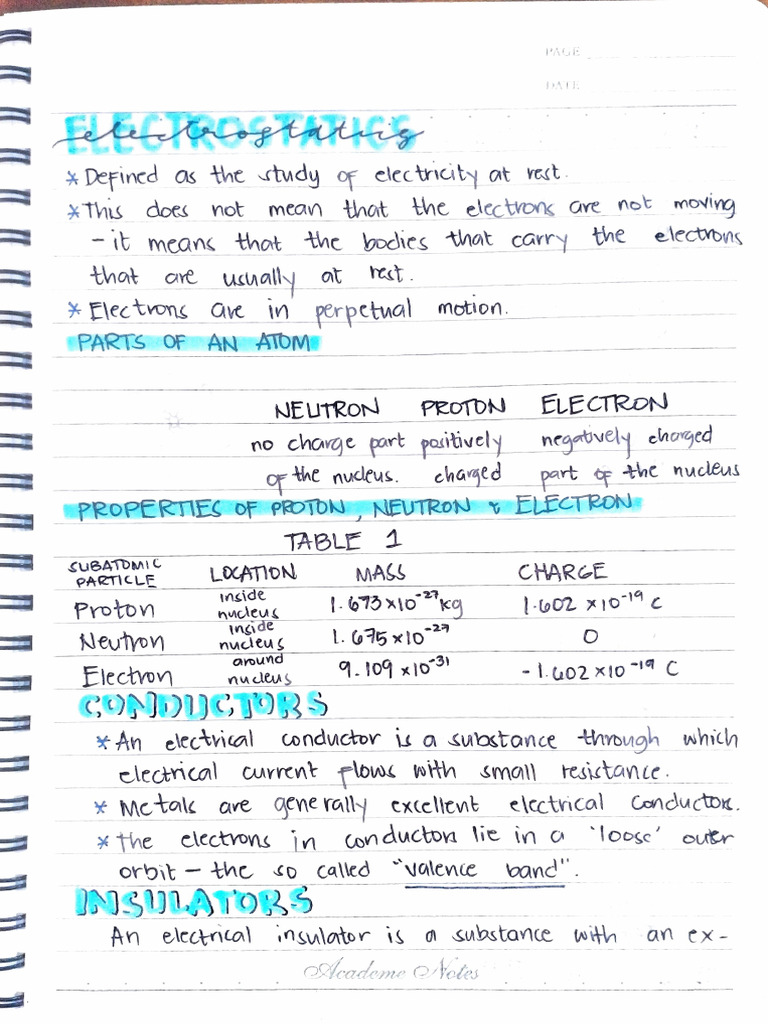 PAGE
DATE
ELECTROSTATICS
electrostatics
* Defined as the study of electricity at rest.
* This does not mean that the electrons are not moving
- it means that the bodies that carry the electrons
that are usually at rest.
* Electrons are in perpetual motion.
PARTS OF AN ATOM
NEUTRON PROTON ELECTRON
no charge part positively negatively charged
of the nucleus. charged part of the nucleus
PROPERTIES OF PROTON, NEUTRON & ELECTRON
TABLE 1
SUBATOMIC PARTICLE LOCATION MASS CHARGE
Proton inside nucleus 1.673 x 10⁻²⁷ kg 1.602 x 10⁻¹⁹ C
Neutron inside nucleus 1.675 x 10⁻²⁷ 0
Electron around nucleus 9.109 x 10⁻³¹ - 1.602 x 10⁻¹⁹ C
CONDUCTORS
* An electrical conductor is a substance through which
electrical current flows with small resistance.
* Metals are generally excellent electrical conductors.
* The electrons in conductors lie in a 'loose' outer
orbit - the so called "valence band".
INSULATORS
An electrical insulator is a substance with an ex-
Academe Notes